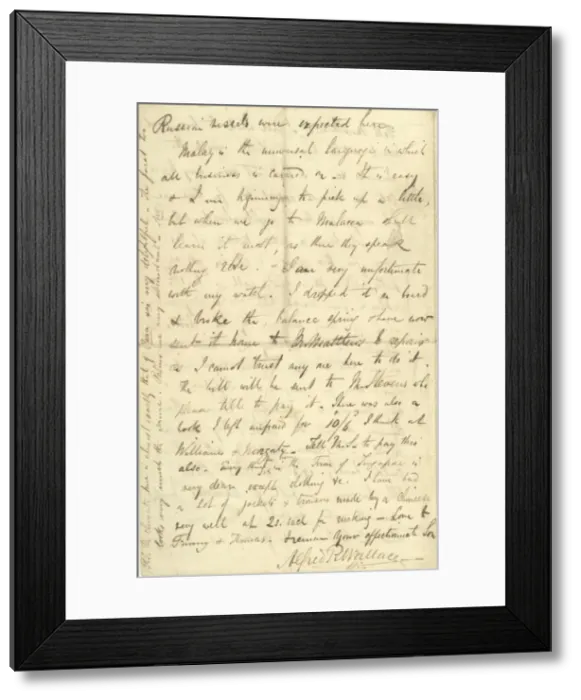 Russian vessels were expected here.
Malay is the universal language in which
all business is carried on. It is easy
& I am beginning to pick up a little,
but when we go to Malacca shall
learn it most, as there they speak
nothing else. - I am very unfortunate
with my watch. I dropped it on board
& broke the balance spring & have now
sent it home to Mr. Matthews to repair
as I cannot trust any one here to do it.
The bill will be sent to Mr. Stevens who
please tell to pay it. There was also a
book I left unpaid for 10/6 I think at
Williams & Norgate. Tell Mr. S. to pay this
also. Every thing in the Town of Singapore is
very dear except clothing &c. I have had
a lot of jackets & trousers made by a Chinese
very well at 2s. each for making - Love to
Fanny & Thomas. I remain Your affectionate Son
Alfred R. Wallace
P.S. The climate here is almost exactly that of Para is very delightful. The first
looks very much the same.